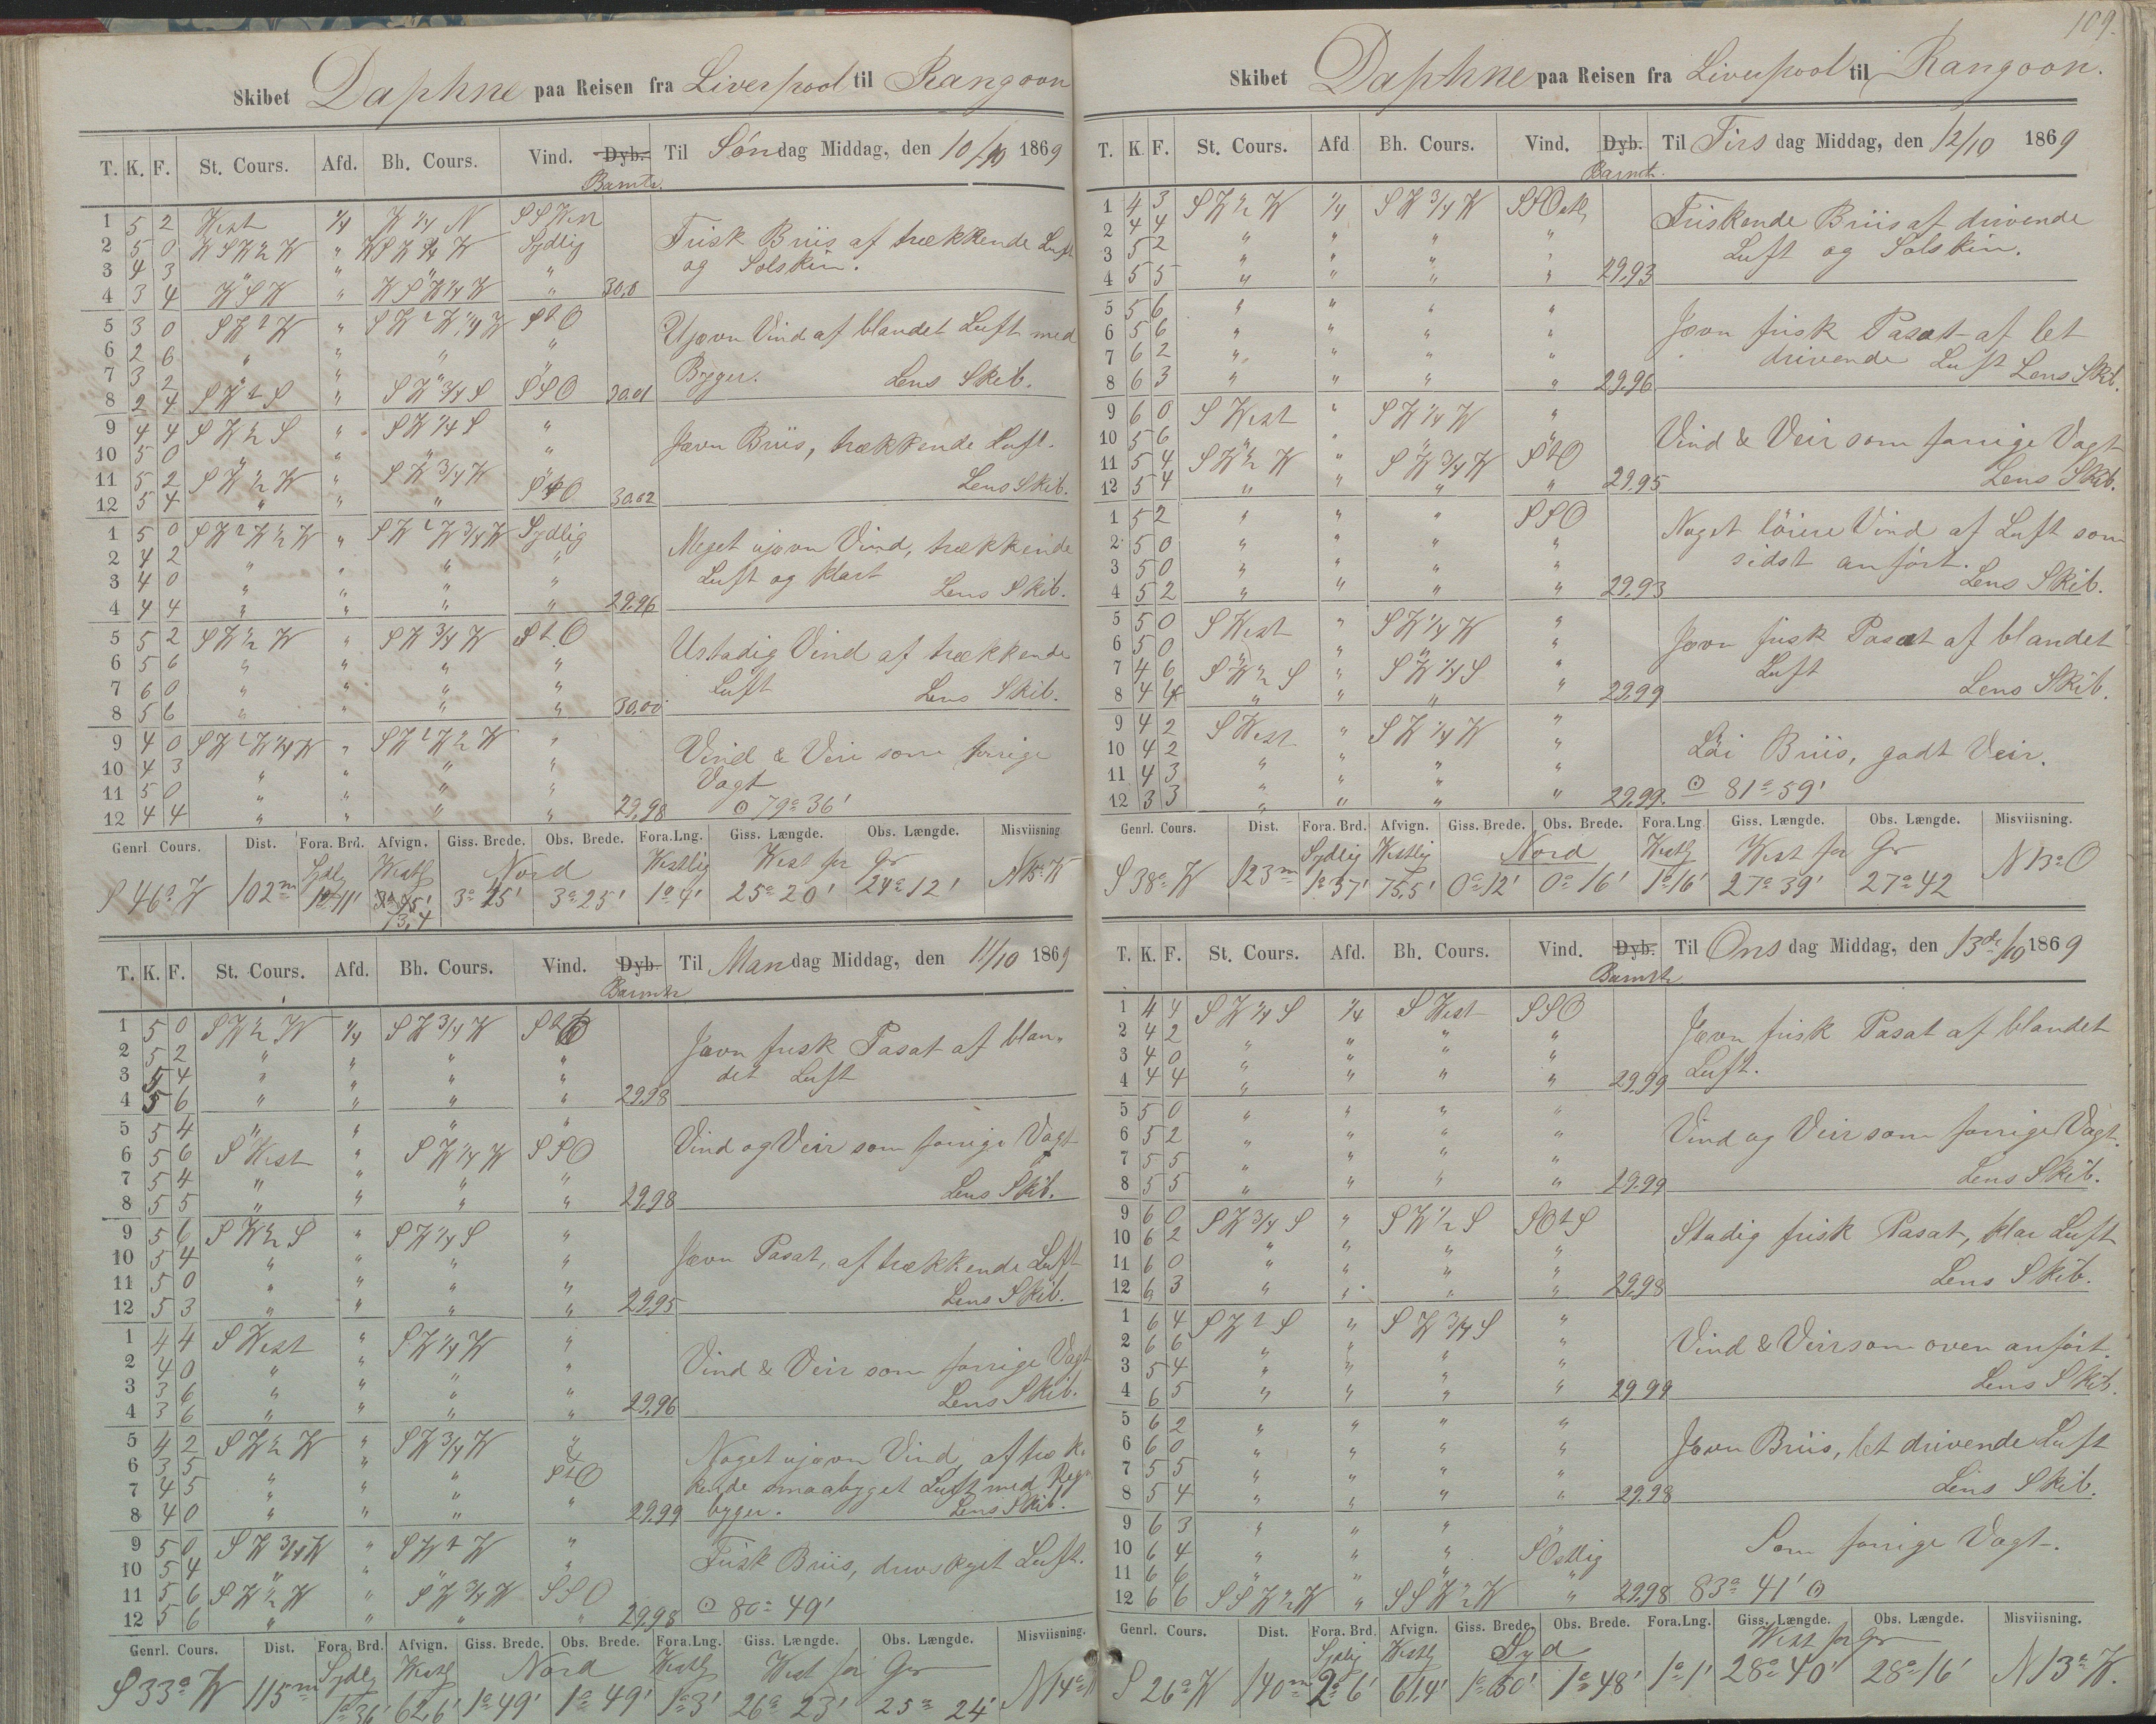 109.
Skibet Daphne paa Reisen fra Liverpool til Rangoon
T. K. F. St. Cours. Afd. Bh. Cours. Vind. Dyb. Til Søndag Middag, den 10/10 1869
Bamtr.
1 5 2 West 1/4 W 1/4 N SSWest
2 5 0 WSW 1/2 W " WSW 3/4 W Sydlig
3 4 3 " " " "
4 3 4 WSW " WSW 1/4 W " 30,0
Frisk Briis af trækkende Luft
og Solskin.
5 3 0 SWtW " SWtW 1/4 W StO
6 2 6 " " " "
7 3 2 " " " "
8 2 4 SWtS " SW 3/4 S SSO 30,01
Ujævn Vind af blandet Luft med
Byger. Lens Skib.
9 4 4 SW 1/2 S " SW 1/4 S "
10 5 0 " " " "
11 5 2 SW 1/2 W " SW 3/4 W "
12 5 4 " " " StO 30,02
Jævn Briis, trækkende Luft.
Lens Skib.
1 5 0 SWtW 1/2 W " SWtW 3/4 W Sydlig
2 4 2 " " " "
3 4 0 " " " "
4 4 4 " " " " 29,96
Meget ujævn Vind, trækkende
Luft og klart
Lens Skib.
5 5 2 SW 1/2 W " SW 3/4 W StO
6 5 6 " " " "
7 6 0 " " " "
8 5 6 " " " " 30,00
Ustadig Vind af trækkende
Luft Lens Skib.
9 4 0 SWtW 1/4 W " SWtW 1/2 W "
10 4 3 " " " "
11 5 0 " " " "
12 4 4 " " " " 29,98
Vind & Veir som forrige
Vagt
⊙ 79° 36'
Genrl. Cours. Dist. Fora. Brd. Afvign. Giss. Brede. Obs. Brede. Fora.Lng. Giss. Længde. Obs. Længde. Misviisning
Sydlg Westlg Nord Westlig West for Gr
S 46° W 102m 1° 11' 73,4 3° 25' 3° 25' 1° 4' 25° 20' 24° 12' N 15° W
T. K. F. St. Cours. Afd. Bh. Cours. Vind. Dyb. Til Mandag Middag, den 11/10 1869
Bamtr
1 5 0 SW 1/2 W 1/4 SW 3/4 W StO
2 5 2 " " " "
3 5 4 " " " "
4 5 6 " " " " 29,98
Jævn frisk Pasat af blan-
det Luft
5 5 4 " " " "
6 5 6 SWest " SW 1/4 W SSO
7 5 4 " " " "
8 5 5 " " " " 29,98
Vind og Veir som forrige Vagt
Lens Skib.
9 5 6 SW 1/2 S " SW 1/4 S "
10 5 4 " " " "
11 5 0 " " " "
12 5 3 " " " " 29,95
Jævn Pasat, af trækkende Luft
Lens Skib.
1 4 4 SWest " SW 1/4 W "
2 4 0 " " " "
3 3 6 " " " "
4 3 6 " " " " 29,96
Vind & Veir som forrige Vagt
Lens Skib.
5 4 2 SW 1/2 W " SW 3/4 W "
6 3 5 " " " "
7 4 5 " " " StO
8 4 0 " " " " 29,99
Noget ujævn Vind, af træk-
kende smaabyget Luft med Regn
byger. Lens Skib.
9 5 0 SW 3/4 W " SWtW "
10 5 4 " " " "
11 5 6 SW 1/2 W " SW 3/4 W SSO
12 5 6 " " " " 29,98
Frisk Briis, Luft.
⊙ 80° 49'
Genrl. Cours. Dist. Fora. Brd. Afvign. Giss. Brede. Obs. Brede. Fora.Lng. Giss. Længde. Obs. Længde. Misviisning.
Sydlg Westlg Nord Westlg West for Gr
S 33° W 115m 1° 36' 62,6' 1° 49' 1° 49' 1° 3' 26° 23' 25° 24' N 14°
Skibet Daphne paa Reisen fra Liverpool til Rangoon.
T. K. F. St. Cours. Afd Bh. Cours. Vind. Dyb. Til Tirsdag Middag, den 12/10 1869
Barmtr.
1 4 3 SW 1/2 W 1/4 SW 3/4 W SSOstlg
2 4 4 " " " "
3 5 2 " " " "
4 5 5 " " " " 29,93
Friskende Briis af drivende
Luft og Solskin.
5 5 6 " " " "
6 5 6 " " " "
7 6 2 " " " "
8 6 3 " " " " 29,96
Jævn frisk Pasat af let
drivende Luft Lens Skib.
9 6 0 SWest " SW 1/4 W "
10 5 6 " " " "
11 5 4 SW 1/2 W " SW 3/4 W StO
12 5 4 " " " " 29,95
Vind & Veir som forrige Vagt
Lens Skib.
1 5 2 " " " SSO
2 5 0 " " " "
3 5 0 " " " "
4 5 2 " " " " 29,93
Noget løiere Vind af Luft som
sidst anført.
Lens Skib.
5 5 0 SWest " SW 1/4 W "
6 5 0 " " " "
7 4 6 SW 1/2 S " SW 1/4 S "
8 4 4 " " " " 29,99
Jævn frisk Pasat af blandet
Luft
Lens Skib.
9 4 2 SWest " SW 1/4 W "
10 4 2 " " " "
11 4 3 " " " "
12 3 3 " " " " 29,99.
Løi Briis, godt Veir.
⊙ 81° 59'
Genrl. Cours. Dist. Fora. Brd. Afvign. Giss. Brede. Obs. Brede. Fora.Lng. Giss. Længde. Obs. Længde. Misviisning.
Sydlig Westlig Nord Westlg West for Gr
S 38° W 123m 1° 37' 75,5' 0° 12' 0° 16' 1° 16' 27° 39' 27° 42 N 13° O
T. K. F. St. Cours. Afd. Bh. Cours. Vind. Dyb. Til Onsdag Middag, den 13de/10 1869
Bamtr
1 4 4 SW 1/4 S 1/4 SWest SSO
2 4 2 " " " "
3 4 0 " " " "
4 4 4 " " " " 29,99
Jævn frisk Pasat af blandet
Luft.
5 5 0 " " " "
6 5 2 " " " "
7 5 5 " " " "
8 5 5 " " " " 29,99
Vind og Veir som forrige Vagt.
Lens Skib.
9 6 0 SW 3/4 S " SW 1/2 S SOtS
10 6 2 " " " "
11 6 0 " " " "
12 6 3 " " " " 29,98
Stadig frisk Pasat, klar Luft
Lens Skib.
1 6 4 SWtS " SW 3/4 S "
2 6 6 " " " "
3 5 4 " " " "
4 6 5 " " " " 29 99
Vind & Veir som oven anført.
Lens Skib.
5 6 2 " " " "
6 6 0 " " " "
7 5 5 " " " "
8 5 4 " " " " 29,98
Jævn Briis, let drivende Luft
Lens Skib.
9 6 3 " " " "
10 6 4 " " " SOstlig
11 6 6 " " " "
12 6 6 SSW 1/2 W " SSW 1/2 W " 29,98
Som forrige Vagt.
83° 41' ⊙
Genrl. Cours. Dist. Fora. Brd. Afvign. Giss. Brede. Obs. Brede. Fora.Lng. Giss. Længde. Obs. Længde. Misviisning.
Sydlig Westlg Syd West for Gr
S 26° W 140m 2° 6' 61,4' 1° 50' 1° 48' 1° 1' 28° 40' 28° 16' N 13° W.